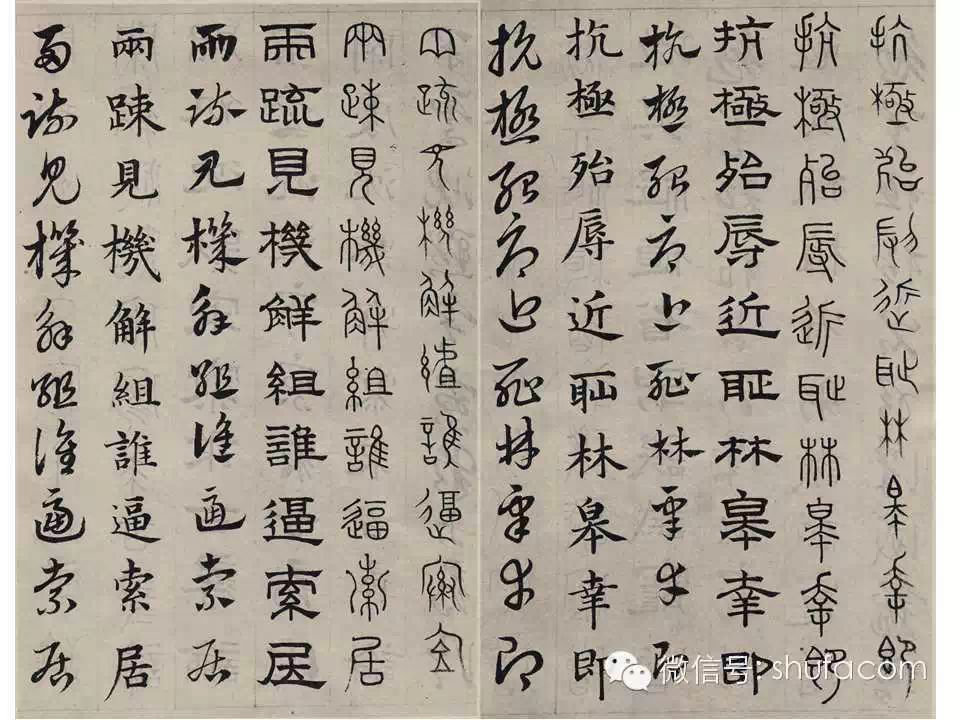 抗極殆辱近耻林皋幸即
抗極殆辱近耻林皋幸即
抗極殆辱近耻林皋幸即
抗極殆辱近耻林皋幸即
抗極殆辱近耻林皋幸即
抗極殆辱近耻林皋幸即
兩疏見機解組誰逼索居
兩疎見機解組誰逼索居
兩疏見機解組誰逼索居
兩疏見機解組誰逼索居
兩疎見機解組誰逼索居
兩疏見機解組誰逼索居
微信号: shufacom